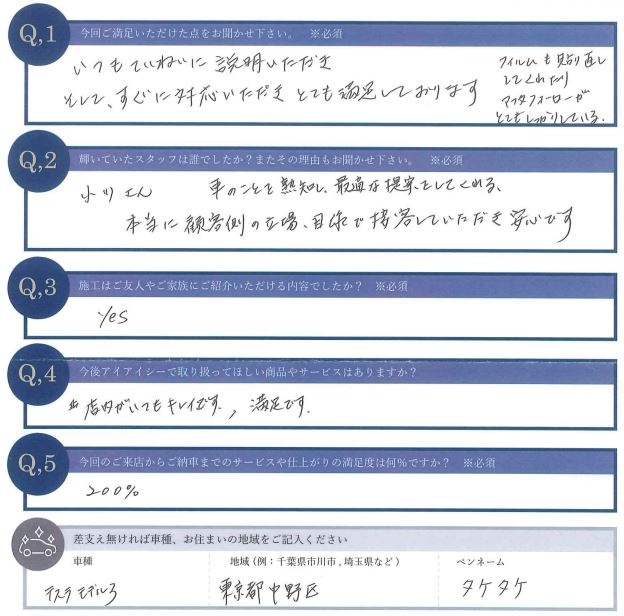 Q,1 今回ご満足いただけた点をお聞かせ下さい。 ※必須
いつもていねいに説明いただき
そして、すぐに対応いただきとても満足しております
フィルムも見貼り直し
してくれたり
アフタフォローが
とてもしっかりしている。
Q,2 輝いていたスタッフは誰でしたか?またその理由もお聞かせ下さい。 ※必須
小川さん 車のことを熟知し、最適な提案をしてくれる、
本当に顧客側の立場、目線で接客していただき安心です
Q,3 施工はご友人やご家族にご紹介いただける内容でしたか? ※必須
Yes
Q,4 今後アイアイシーで取り扱ってほしい商品やサービスはありますか?
店内がいつもキレイです、満足です.
Q,5 今回のご来店からご納車までのサービスや仕上がりの満足度は何%ですか? ※必須
200%
差支え無ければ車種、お住まいの地域をご記入ください
車種 地域(例:千葉県市川市,埼玉県など) ペンネーム
テスラモデル3 東京都中野区 タケタケ